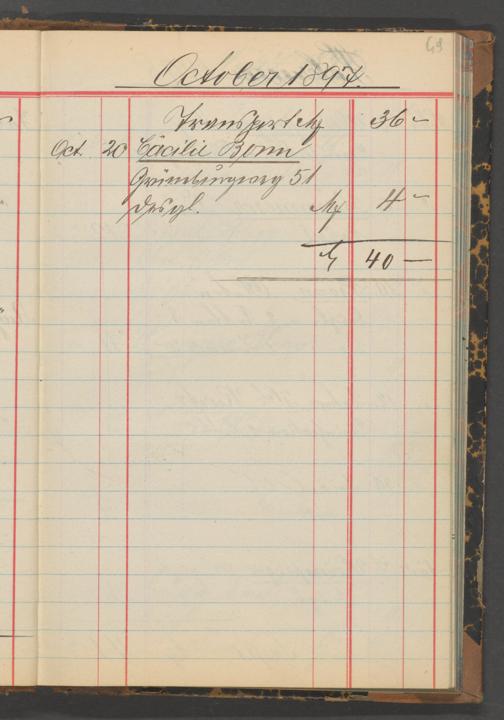 69
October 1897.
Transport M 36 –
Oct. 20 Cäcilie Bonn
Grüneburgweg 51
desgl. M 4 –
M 40 —